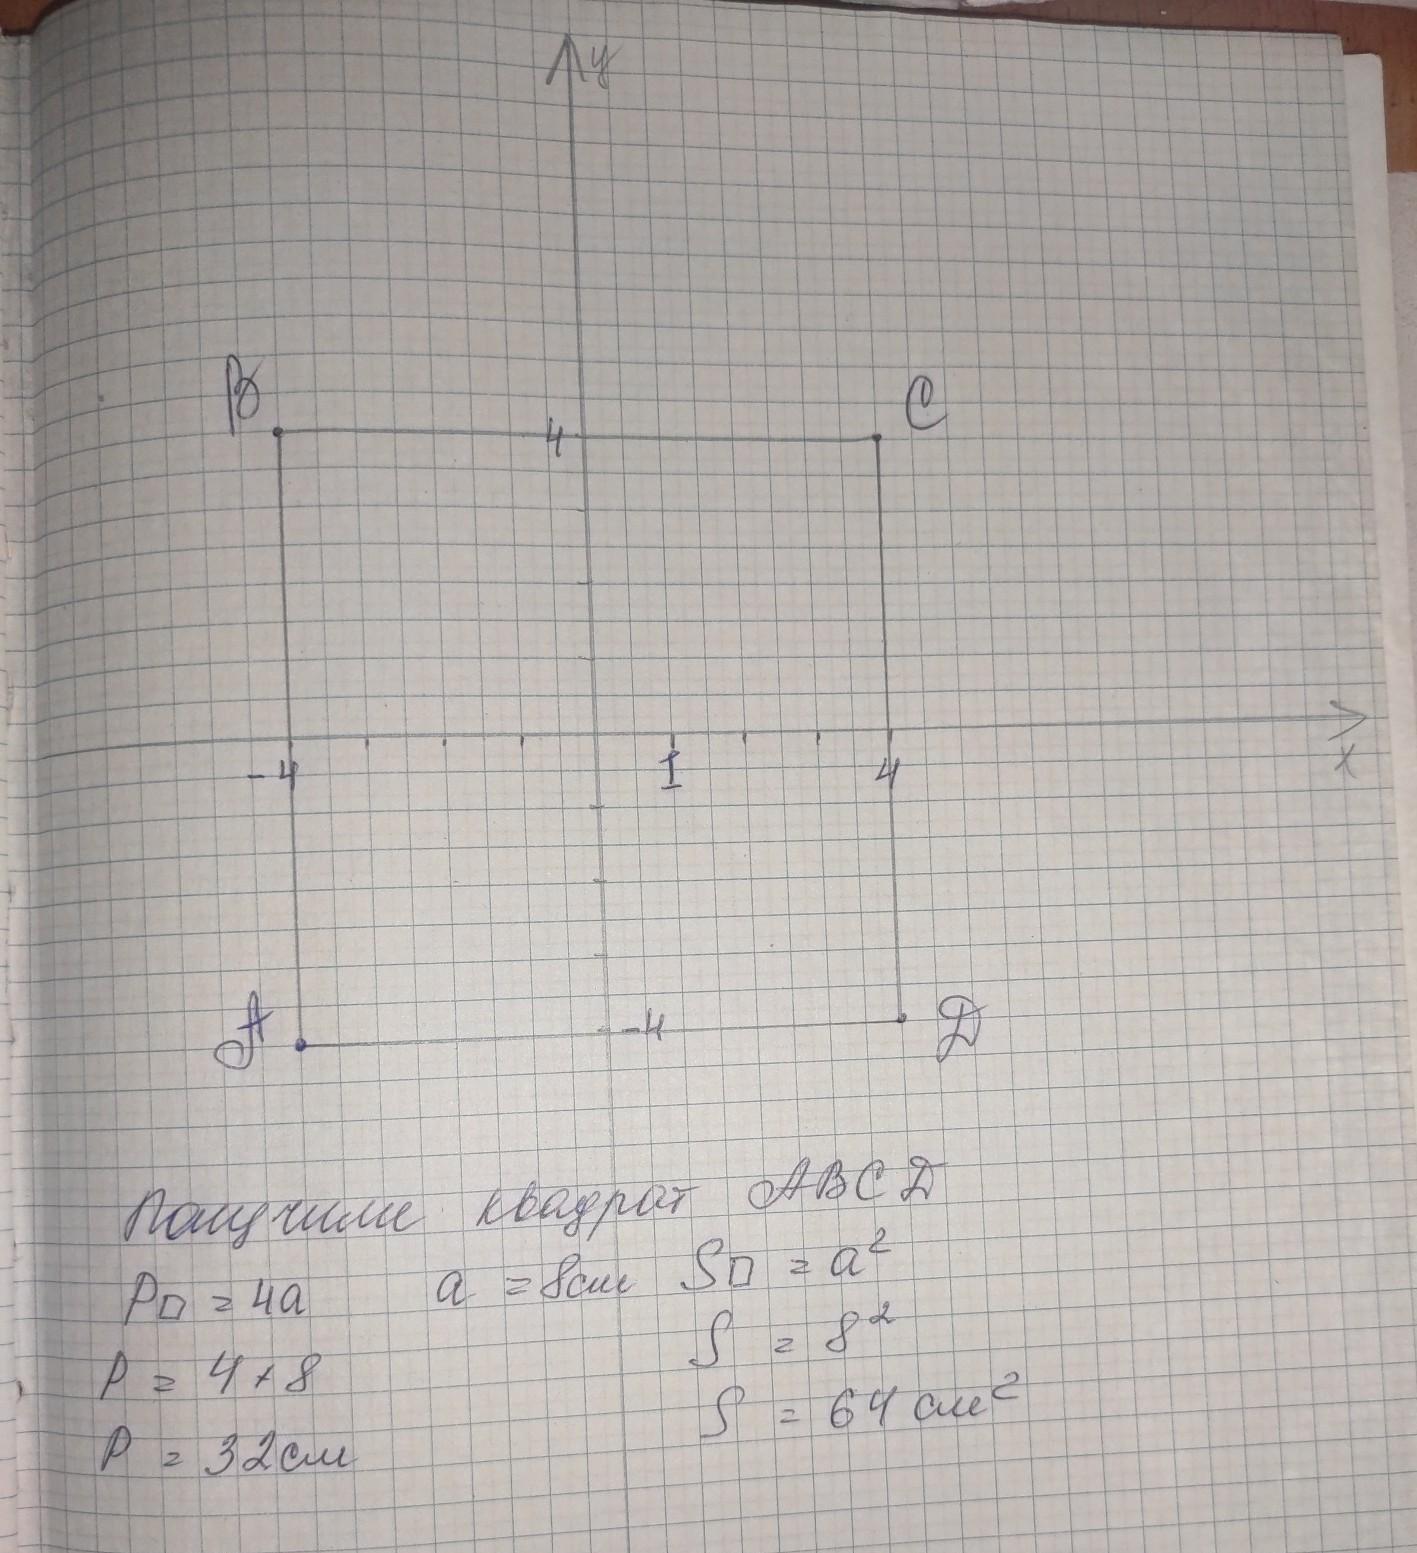 y
B
C
4
-4
1
4
x
A
-4
D
Получили квадрат ABCD
P□ = 4a a = 8см S□ = a²
P = 4 * 8 S = 8²
P = 32см S = 64 см²